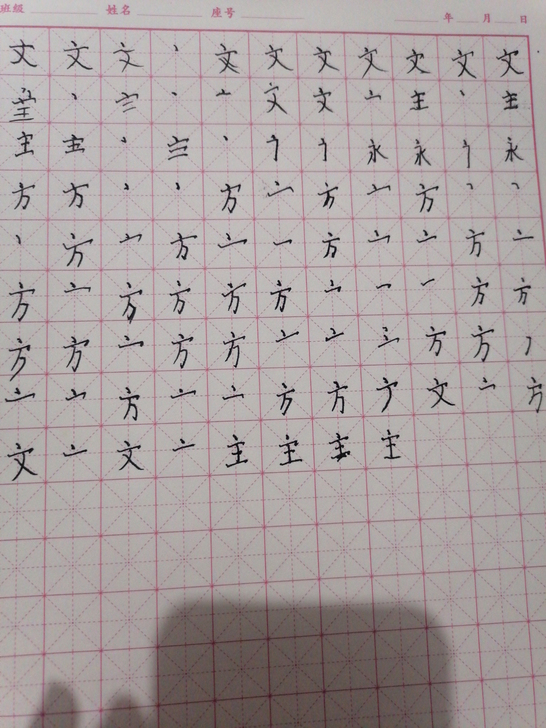 班级 姓名 座号 年 月 日
文 文 文 丶 文 文 文 文 文 文 文
丶 丶 亠 文 文 亠 主 丶 主
主 主 丶 丶 永 永 永
方 方 丶 丶 方 亠 方 亠 方 丶 丶
丶 方 亠 方 亠 一 方 亠 亠 方 亠
方 亠 方 方 方 方 亠 一 一 方 方
方 方 亠 方 方 亠 亠 方 方
亠 亠 方 亠 亠 方 方 文 亠 方
文 亠 文 亠 主 主 主 主